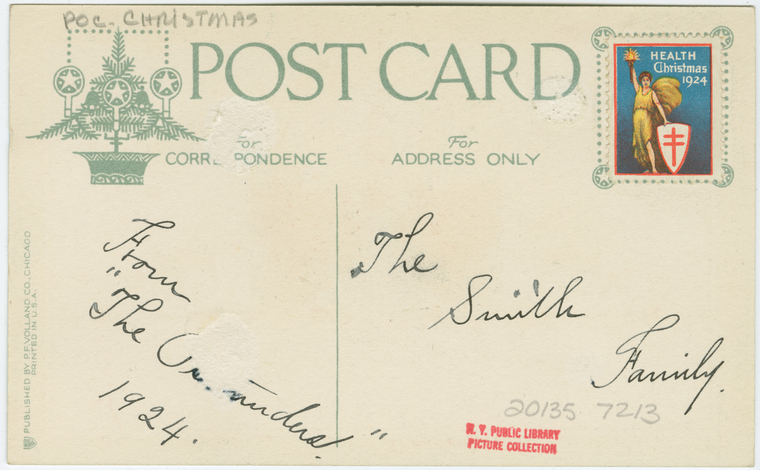 POC- CHRISTMAS
POST CARD
HEALTH
Christmas
1924
For
CORRESPONDENCE
For
ADDRESS ONLY
From
"The
"
1924.
The
Smith
Family.
PUBLISHED BY P.F. VOLLAND CO., CHICAGO
PRINTED IN U.S.A.
20135 7213
N. Y. PUBLIC LIBRARY
PICTURE COLLECTION